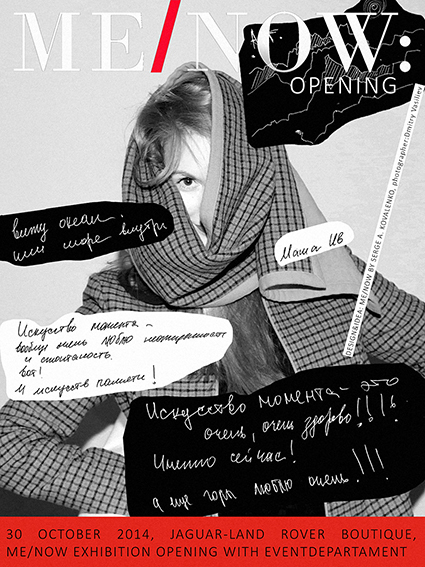 ME/NOW:
OPENING
DESIGN&IDEA: ME/NOW BY SERGE A. KOVALENKO, photographer:Dmitry Vasiliev
вижу океан.
или море внутри
Маша Ив
Искусство момента –
вообще очень люблю
и спонтанность.
Вот!
И искусств памяти!
Искусство момента – это
очень, очень здорово!!!!
Именно сейчас!
а еще горы люблю очень!!!
30 OCTOBER 2014, JAGUAR-LAND ROVER BOUTIQUE,
ME/NOW EXHIBITION OPENING WITH EVENTDEPARTAMENT